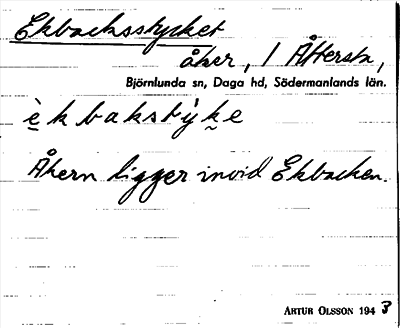 Ekbacksstycket
åker, / Åttersta,
Björnlunda sn, Daga hd, Södermanlands län.
è̱kbakstỳk̬e
Åkern ligger invid Ekbacken.
ARTUR OLSSON 1943